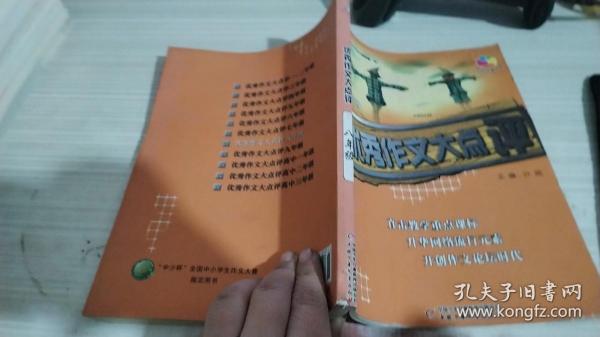 优秀作文大点评一二年级
优秀作文大点评三年级
优秀作文大点评四年级
优秀作文大点评五年级
优秀作文大点评六年级
优秀作文大点评七年级
优秀作文大点评九年级
优秀作文大点评高中一年级
优秀作文大点评高中二年级
优秀作文大点评高中三年级
“中少杯”全国中小学生作文大赛
指定用书
优秀作文大点评
八年级
优秀作文大点评
主编
直击教学重点课标
升华网络流行元素
开创作文论坛时代
孔夫子旧书网
www.kongfz.com